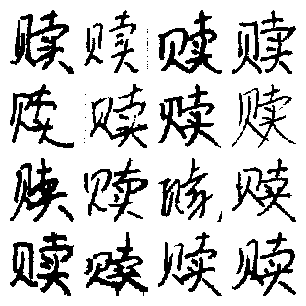 赎赎赎赎
赎赎赎赎
赎赎赎赎
赎赎赎赎